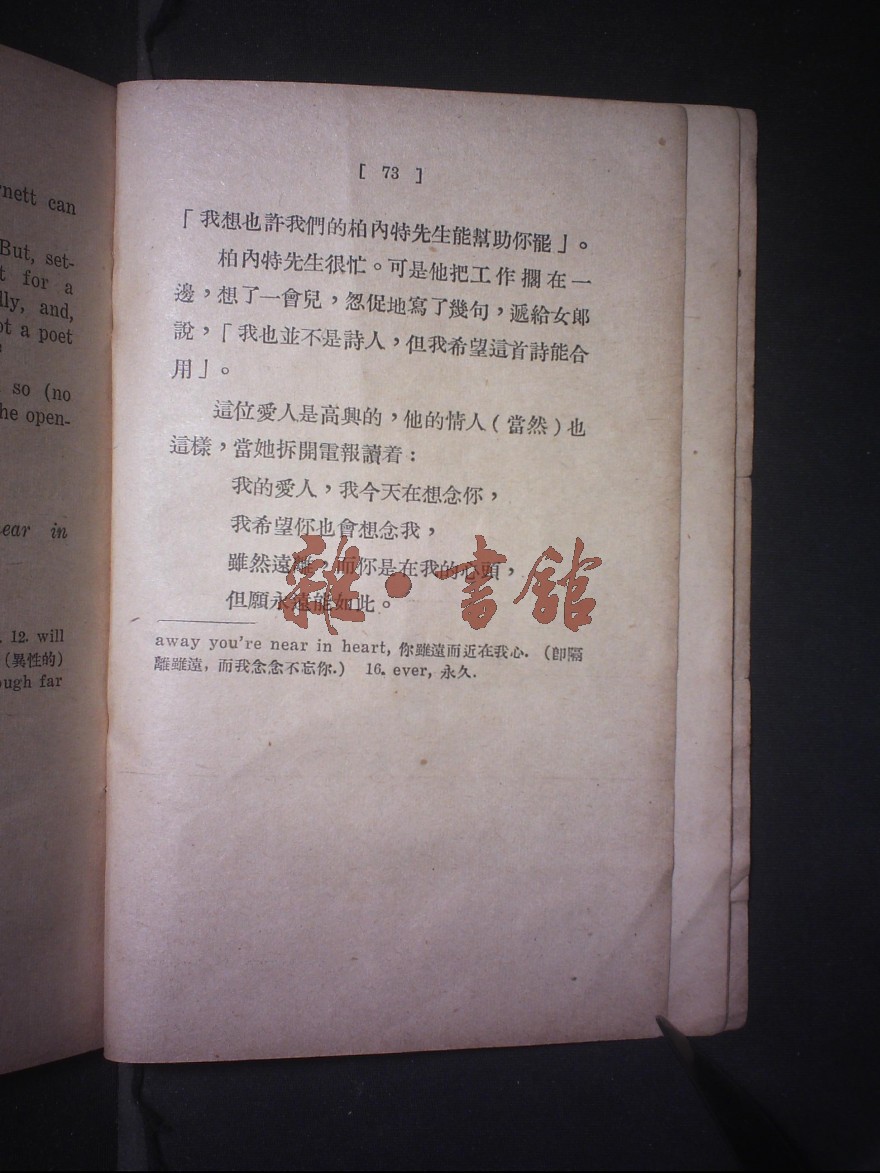 nett can
But, set-
t for a
lly, and,
ot a poet
so (no
he open-
ear in
12. will
(異性的)
ough far
[ 73 ]
「我想也許我們的柏內特先生能幫助你罷」。
柏內特先生很忙。可是他把工作擱在一
邊，想了一會兒，忽促地寫了幾句，遞給女郞
說，「我也並不是詩人，但我希望這首詩能合
用」。
這位愛人是高興的，他的情人(當然)也
這樣，當她拆開電報讀着：
我的愛人，我今天在想念你，
我希望你也會想念我，
雖然遠離，而你是在我的心頭，
但願永遠能如此。
away you're near in heart, 你雖遠而近在我心. (卽隔
離雖遠，而我念念不忘你.) 16. ever, 永久.
雜·書館